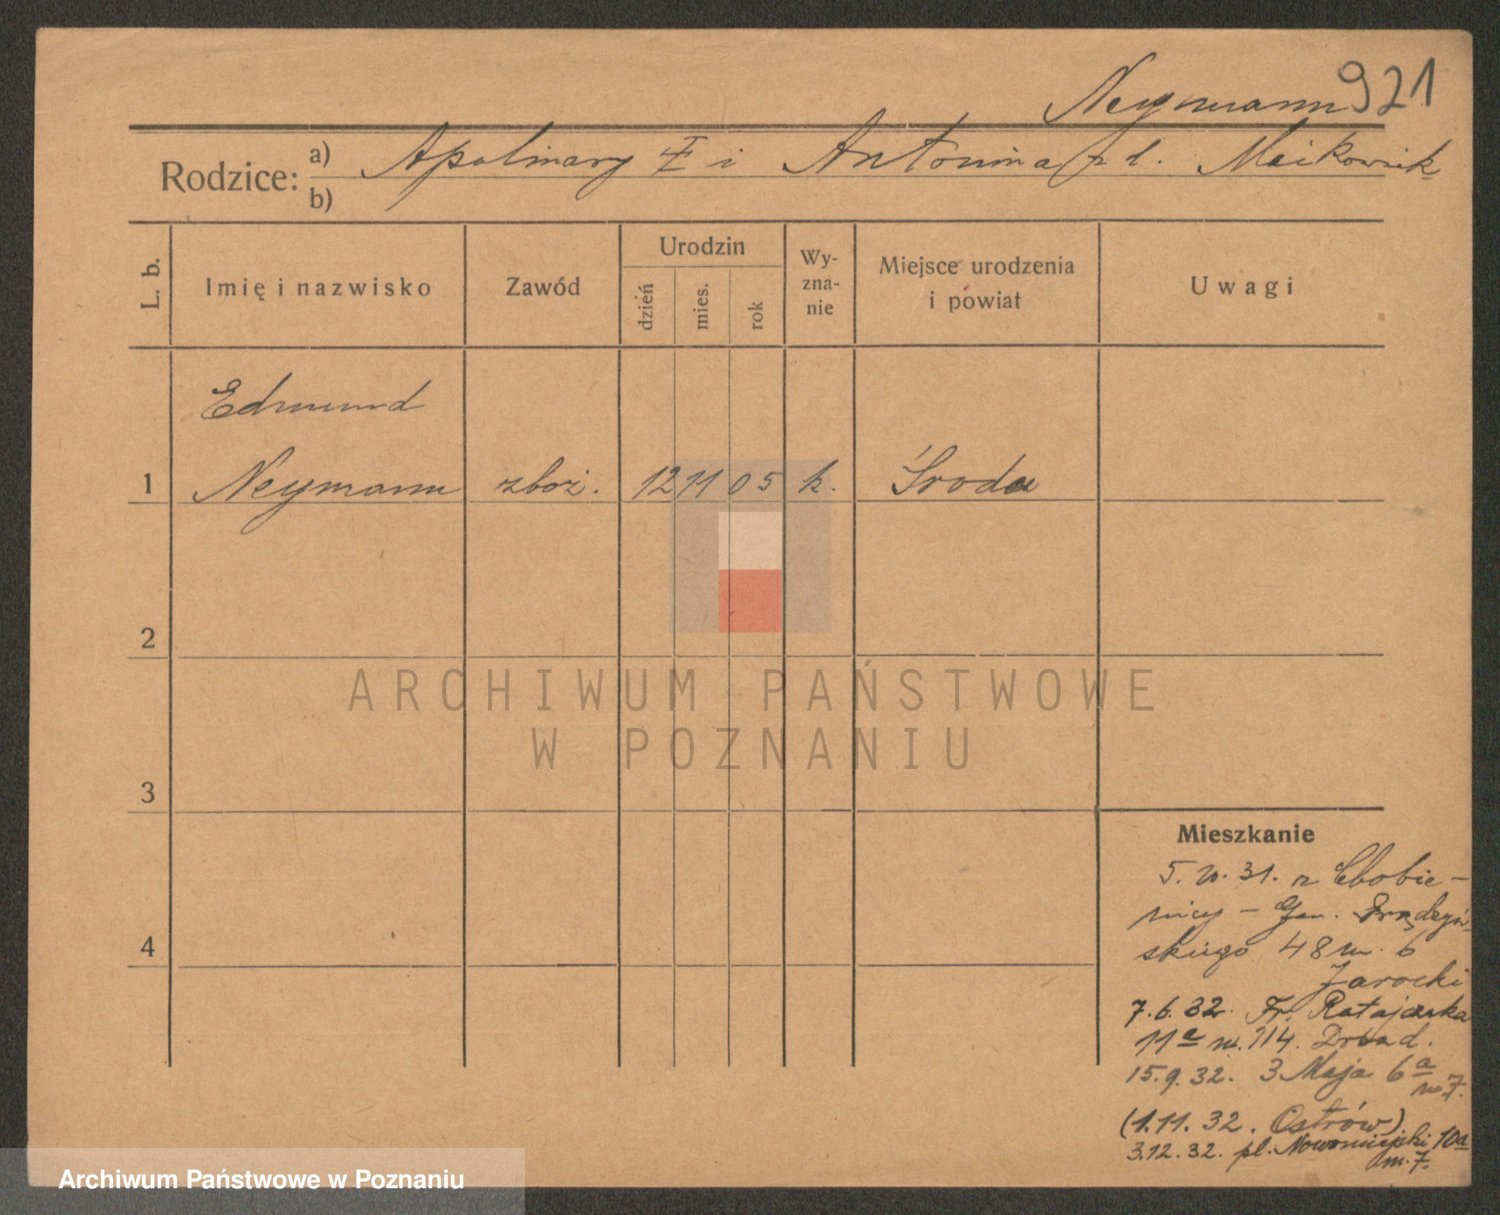 Neymann 921
Rodzice: a) Apolinary i Antonina z d.
b)
L. b.
Imię i nazwisko
Zawód
Urodzin
dzień
mies.
rok
Wy-
zna-
nie
Miejsce urodzenia
i powiat
Uwagi
Edmund
1 Neymann zboż. 12 11 05 k. Środa
2
3
4
ARCHIWUM PAŃSTWOWE
W POZNANIU
Mieszkanie
5. 31. z
Gen. Prądzyń-
skiego 48 m. 6
Jarocki
7.6.32. Fr. Ratajczaka
11a m. 114.
15.9.32. 3 Maja 6a
m. 7.
(1.11.32. Ostrów)
3.12.32. pl. Nowomiejski 10a
m. 7.
Archiwum Państwowe w Poznaniu